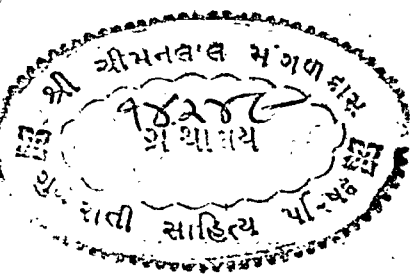 શ્રી ચીમનલાલ મંગળદાસ
૧૪૨૪૮
ગ્રંથાલય
ગુજરાતી સાહિત્ય પરિષદ